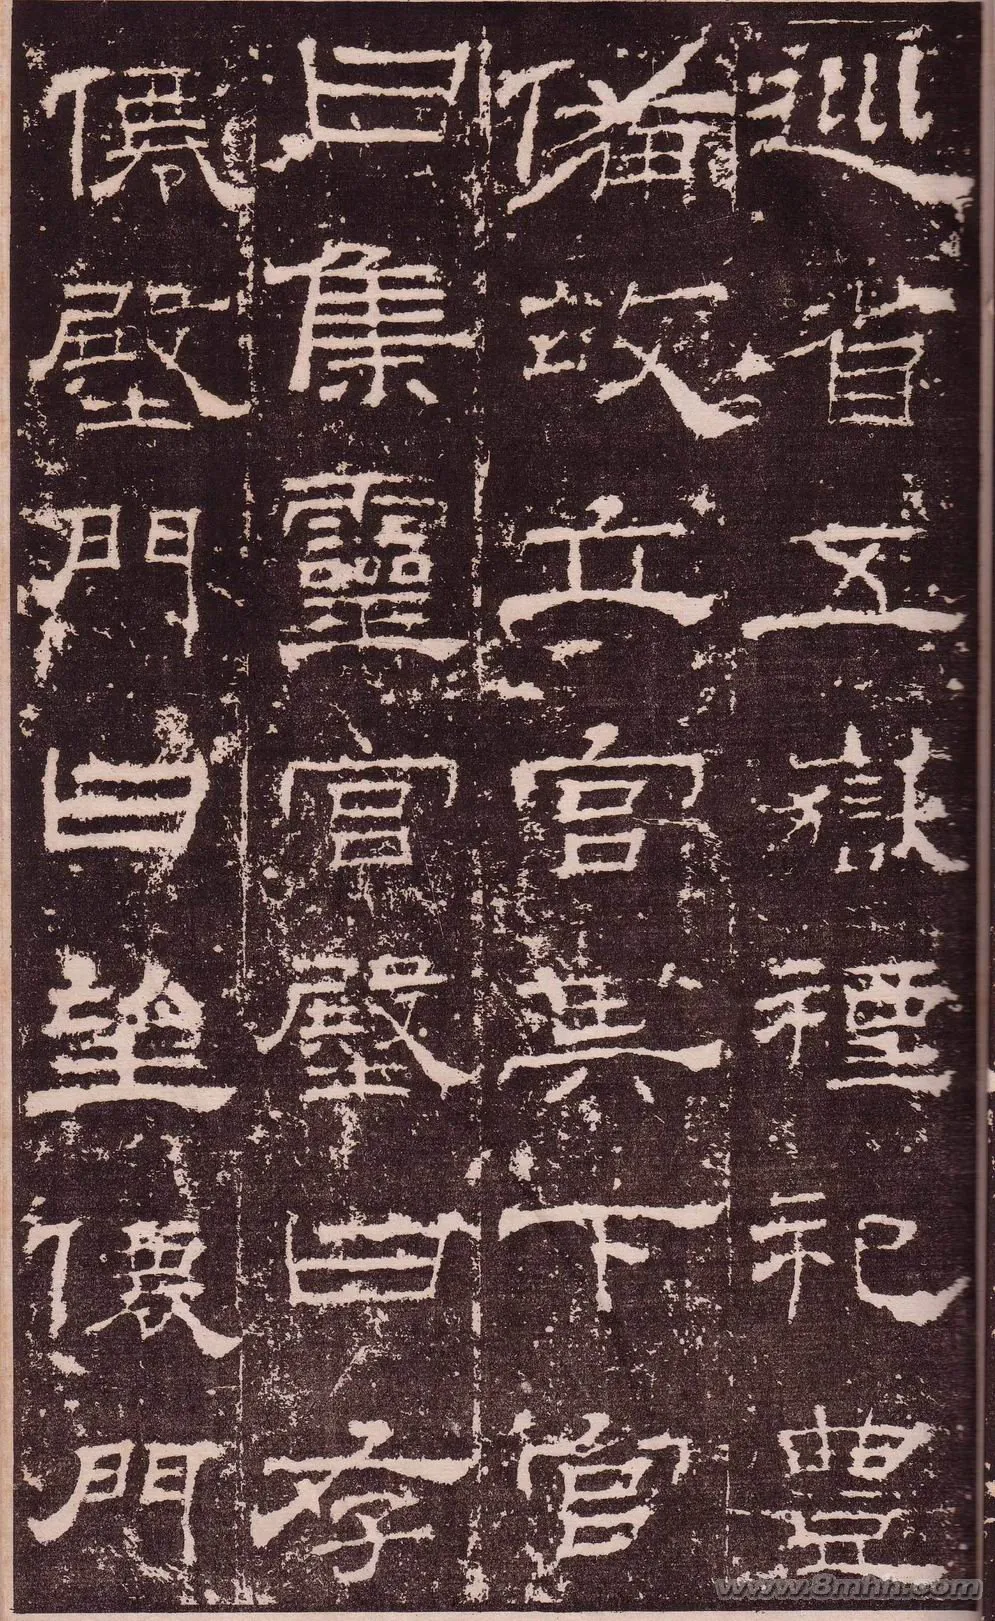 巡省五嶽禋祀豐
備故立宮其下宮
曰集靈宮殿曰存
僊殿門曰望僊門
www.8mhh.com